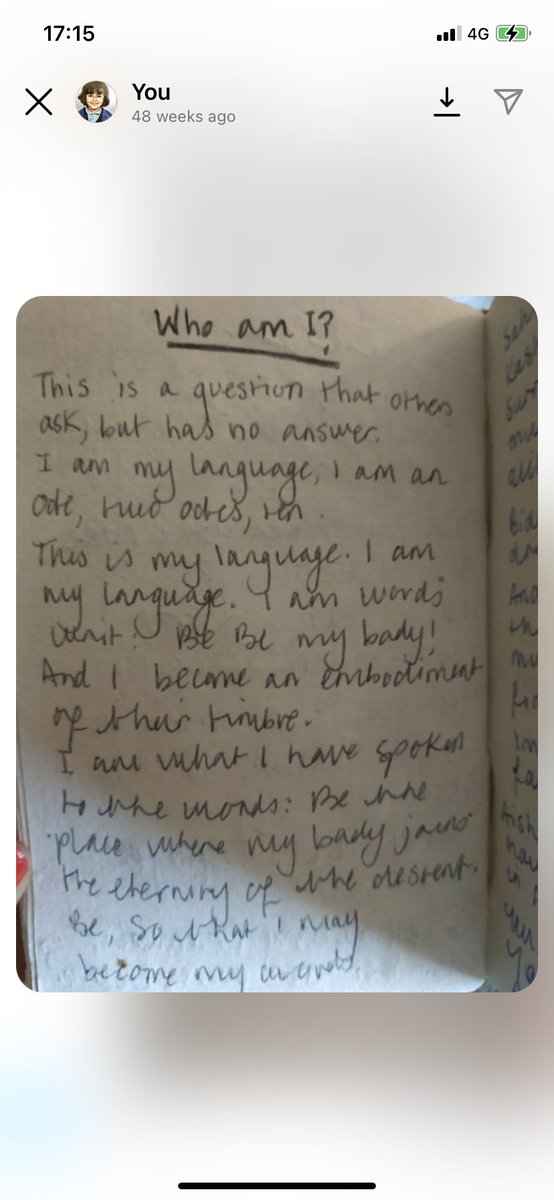 17:15
4G
You
48 weeks ago
Who am I?
This is a question that others
ask, but has no answer.
I am my language, I am an
ode, two odes, ten.
This is my language. I am
my language. I am words
writ: Be Be my body!
And I become an embodiment
of their timbre.
I am what I have spoken
to the words: Be the
place where my body joins
the eternity of the desert.
Be, So that I may
become my words.